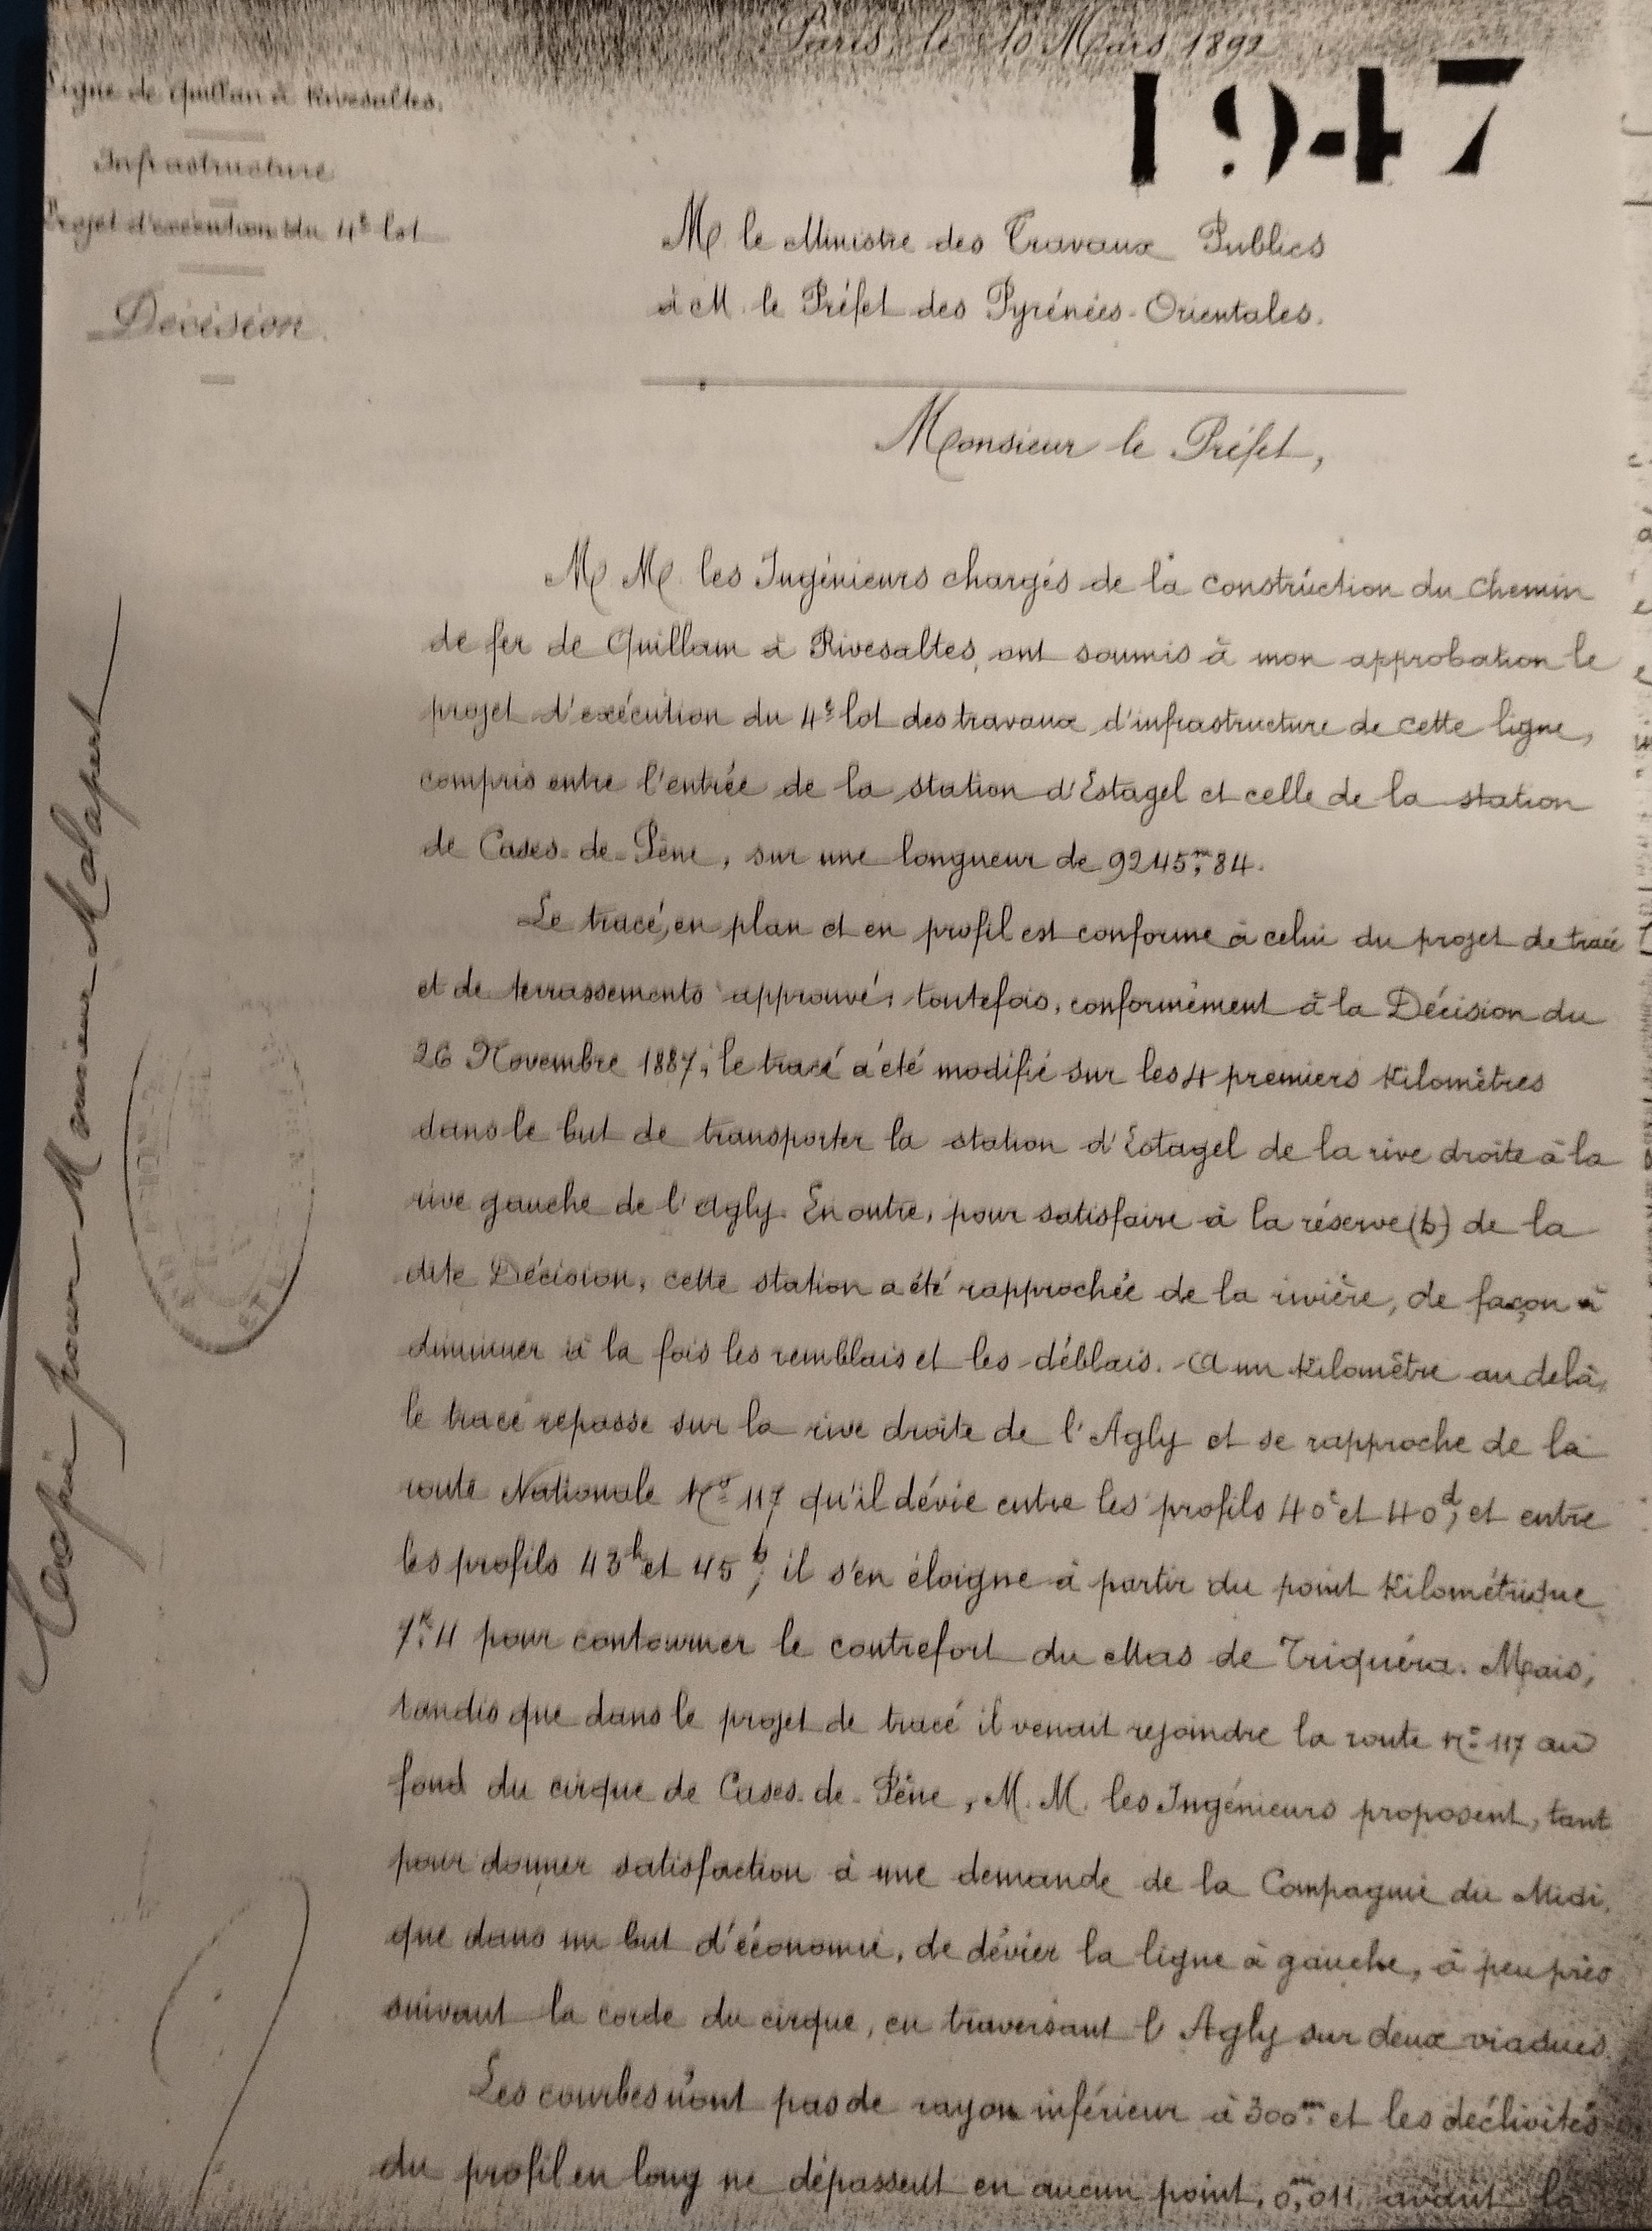 Paris, le 10 Mars 1892
1947
Ligne de Quillan à Rivesaltes.
Infrastructure
Projet d'exécution du 4e lot
Décision.
M. le Ministre des Travaux Publics
à M. le Préfet des Pyrénées-Orientales.
Monsieur le Préfet,
M. M. les Ingénieurs chargés de la construction du chemin
de fer de Quillan à Rivesaltes, ont soumis à mon approbation le
projet d'exécution du 4e lot des travaux d'infrastructure de cette ligne,
compris entre l'entrée de la station d'Estagel et celle de la station
de Cases-de-Pène, sur une longueur de 9245m,84.
Le tracé, en plan et en profil est conforme à celui du projet de tracé
et de terrassements approuvé; toutefois, conformément à la Décision du
26 Novembre 1887, le tracé a été modifié sur les 4 premiers Kilomètres
dans le but de transporter la station d'Estagel de la rive droite à la
rive gauche de l'Agly. En outre, pour satisfaire à la réserve (b) de la
dite Décision, cette station a été rapprochée de la rivière, de façon à
diminuer à la fois les remblais et les déblais. A un Kilomètre au delà,
le tracé repasse sur la rive droite de l'Agly et se rapproche de la
route Nationale No 117 qu'il dévie entre les profils 40c et 40d, et entre
les profils 43h et 45b; il s'en éloigne à partir du point Kilométrique
7K,4 pour contourner le contrefort du Mas de Triquéra. Mais,
tandis que dans le projet de tracé il venait rejoindre la route No 117 au
fond du cirque de Cases-de-Pène, M. M. les Ingénieurs proposent, tant
pour donner satisfaction à une demande de la Compagnie du Midi,
que dans un but d'économie, de dévier la ligne à gauche, à peu près
suivant la corde du cirque, en traversant l'Agly sur deux viaducs.
Les courbes n'ont pas de rayon inférieur à 300m et les déclivités
du profil en long ne dépassent en aucun point, 0m,011, avant la
Copie pour Monsieur Malapert